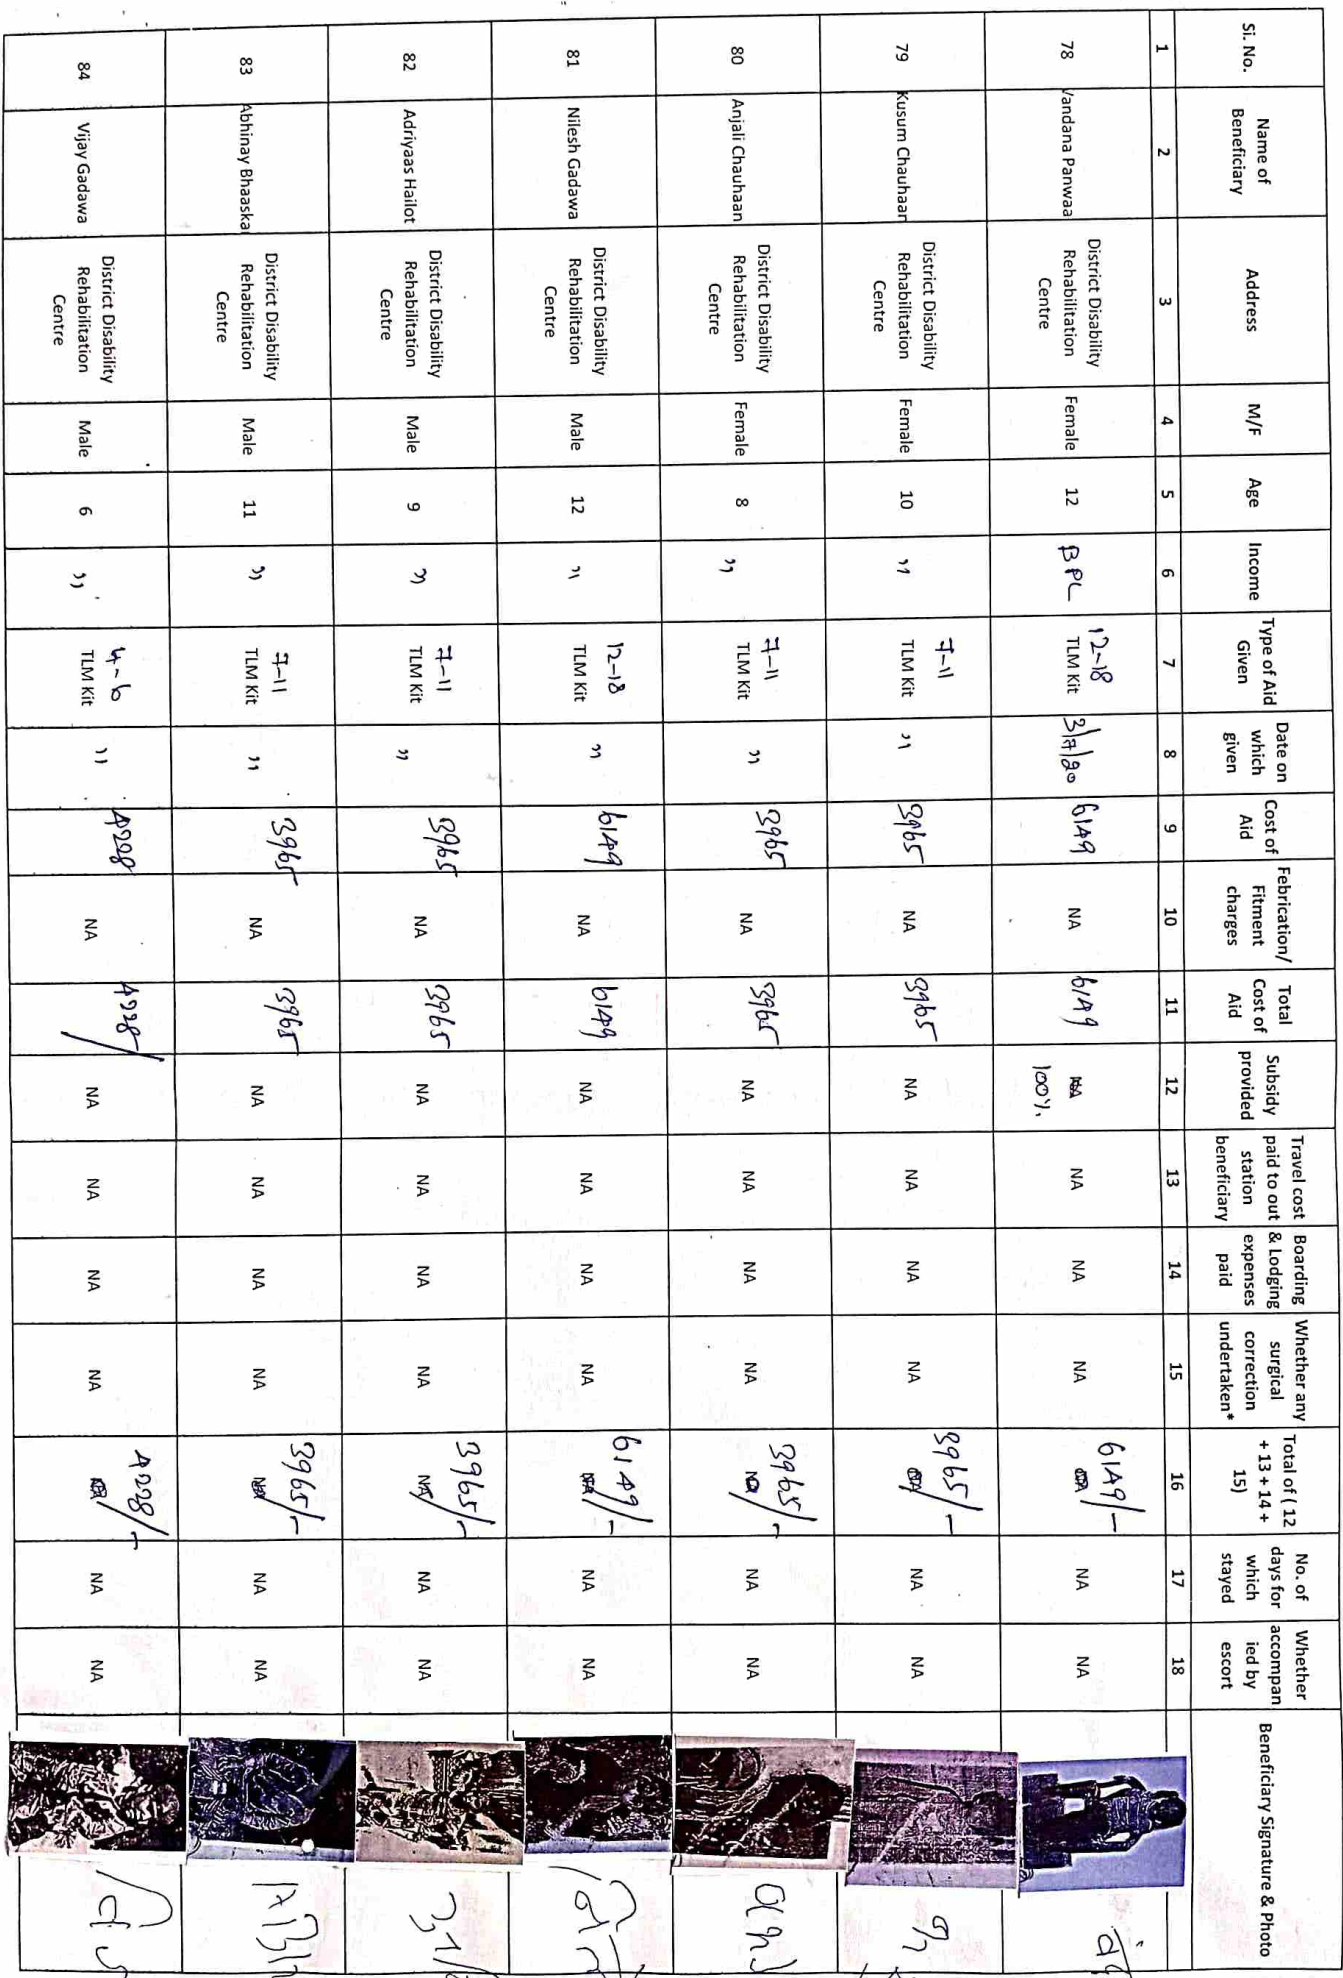 Si. No. Name of Beneficiary Address M/F Age Income Type of Aid Given Date on which given Cost of Aid Febrication/ Fitment charges Total Cost of Aid Subsidy provided Travel cost paid to out station beneficiary Boarding & Lodging expenses paid Whether any surgical correction undertaken* Total of ( 12 + 13 + 14 + 15) No. of days for which stayed Whether accompan ied by escort Beneficiary Signature & Photo
1 2 3 4 5 6 7 8 9 10 11 12 13 14 15 16 17 18
78 Vandana Panwaa District Disability Rehabilitation Centre Female 12 BPL 12-18 TLM Kit 3/7/20 6149 NA 6149 100%. NA NA NA 6149/- NA NA
79 Kusum Chauhaan District Disability Rehabilitation Centre Female 10 " 7-11 TLM Kit " 3965 NA 3965 NA NA NA NA 3965/- NA NA
80 Anjali Chauhaan District Disability Rehabilitation Centre Female 8 " 7-11 TLM Kit " 3965 NA 3965 NA NA NA NA 3965/- NA NA
81 Nilesh Gadawa District Disability Rehabilitation Centre Male 12 " 12-18 TLM Kit " 6149 NA 6149 NA NA NA NA 6149/- NA NA
82 Adriyaas Hailot District Disability Rehabilitation Centre Male 9 " 7-11 TLM Kit " 3965 NA 3965 NA NA NA NA 3965/- NA NA
83 Abhinay Bhaaska District Disability Rehabilitation Centre Male 11 " 7-11 TLM Kit " 3965 NA 3965 NA NA NA NA 3965/- NA NA
84 Vijay Gadawa District Disability Rehabilitation Centre Male 6 " 4-6 TLM Kit " 4228 NA 4228/ NA NA NA NA 4228/- NA NA